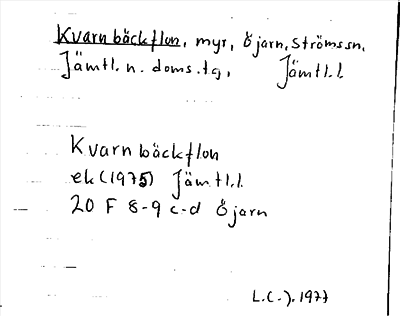 Kvarnbäckflon, myr, Öjarn, Ströms sn,
Jämtl. n. doms.tg, Jämtl.l.
Kvarnbäckflon
ek (1975) Jämtl.l.
20 F 8-9 c-d Öjarn
L.(-). 1977